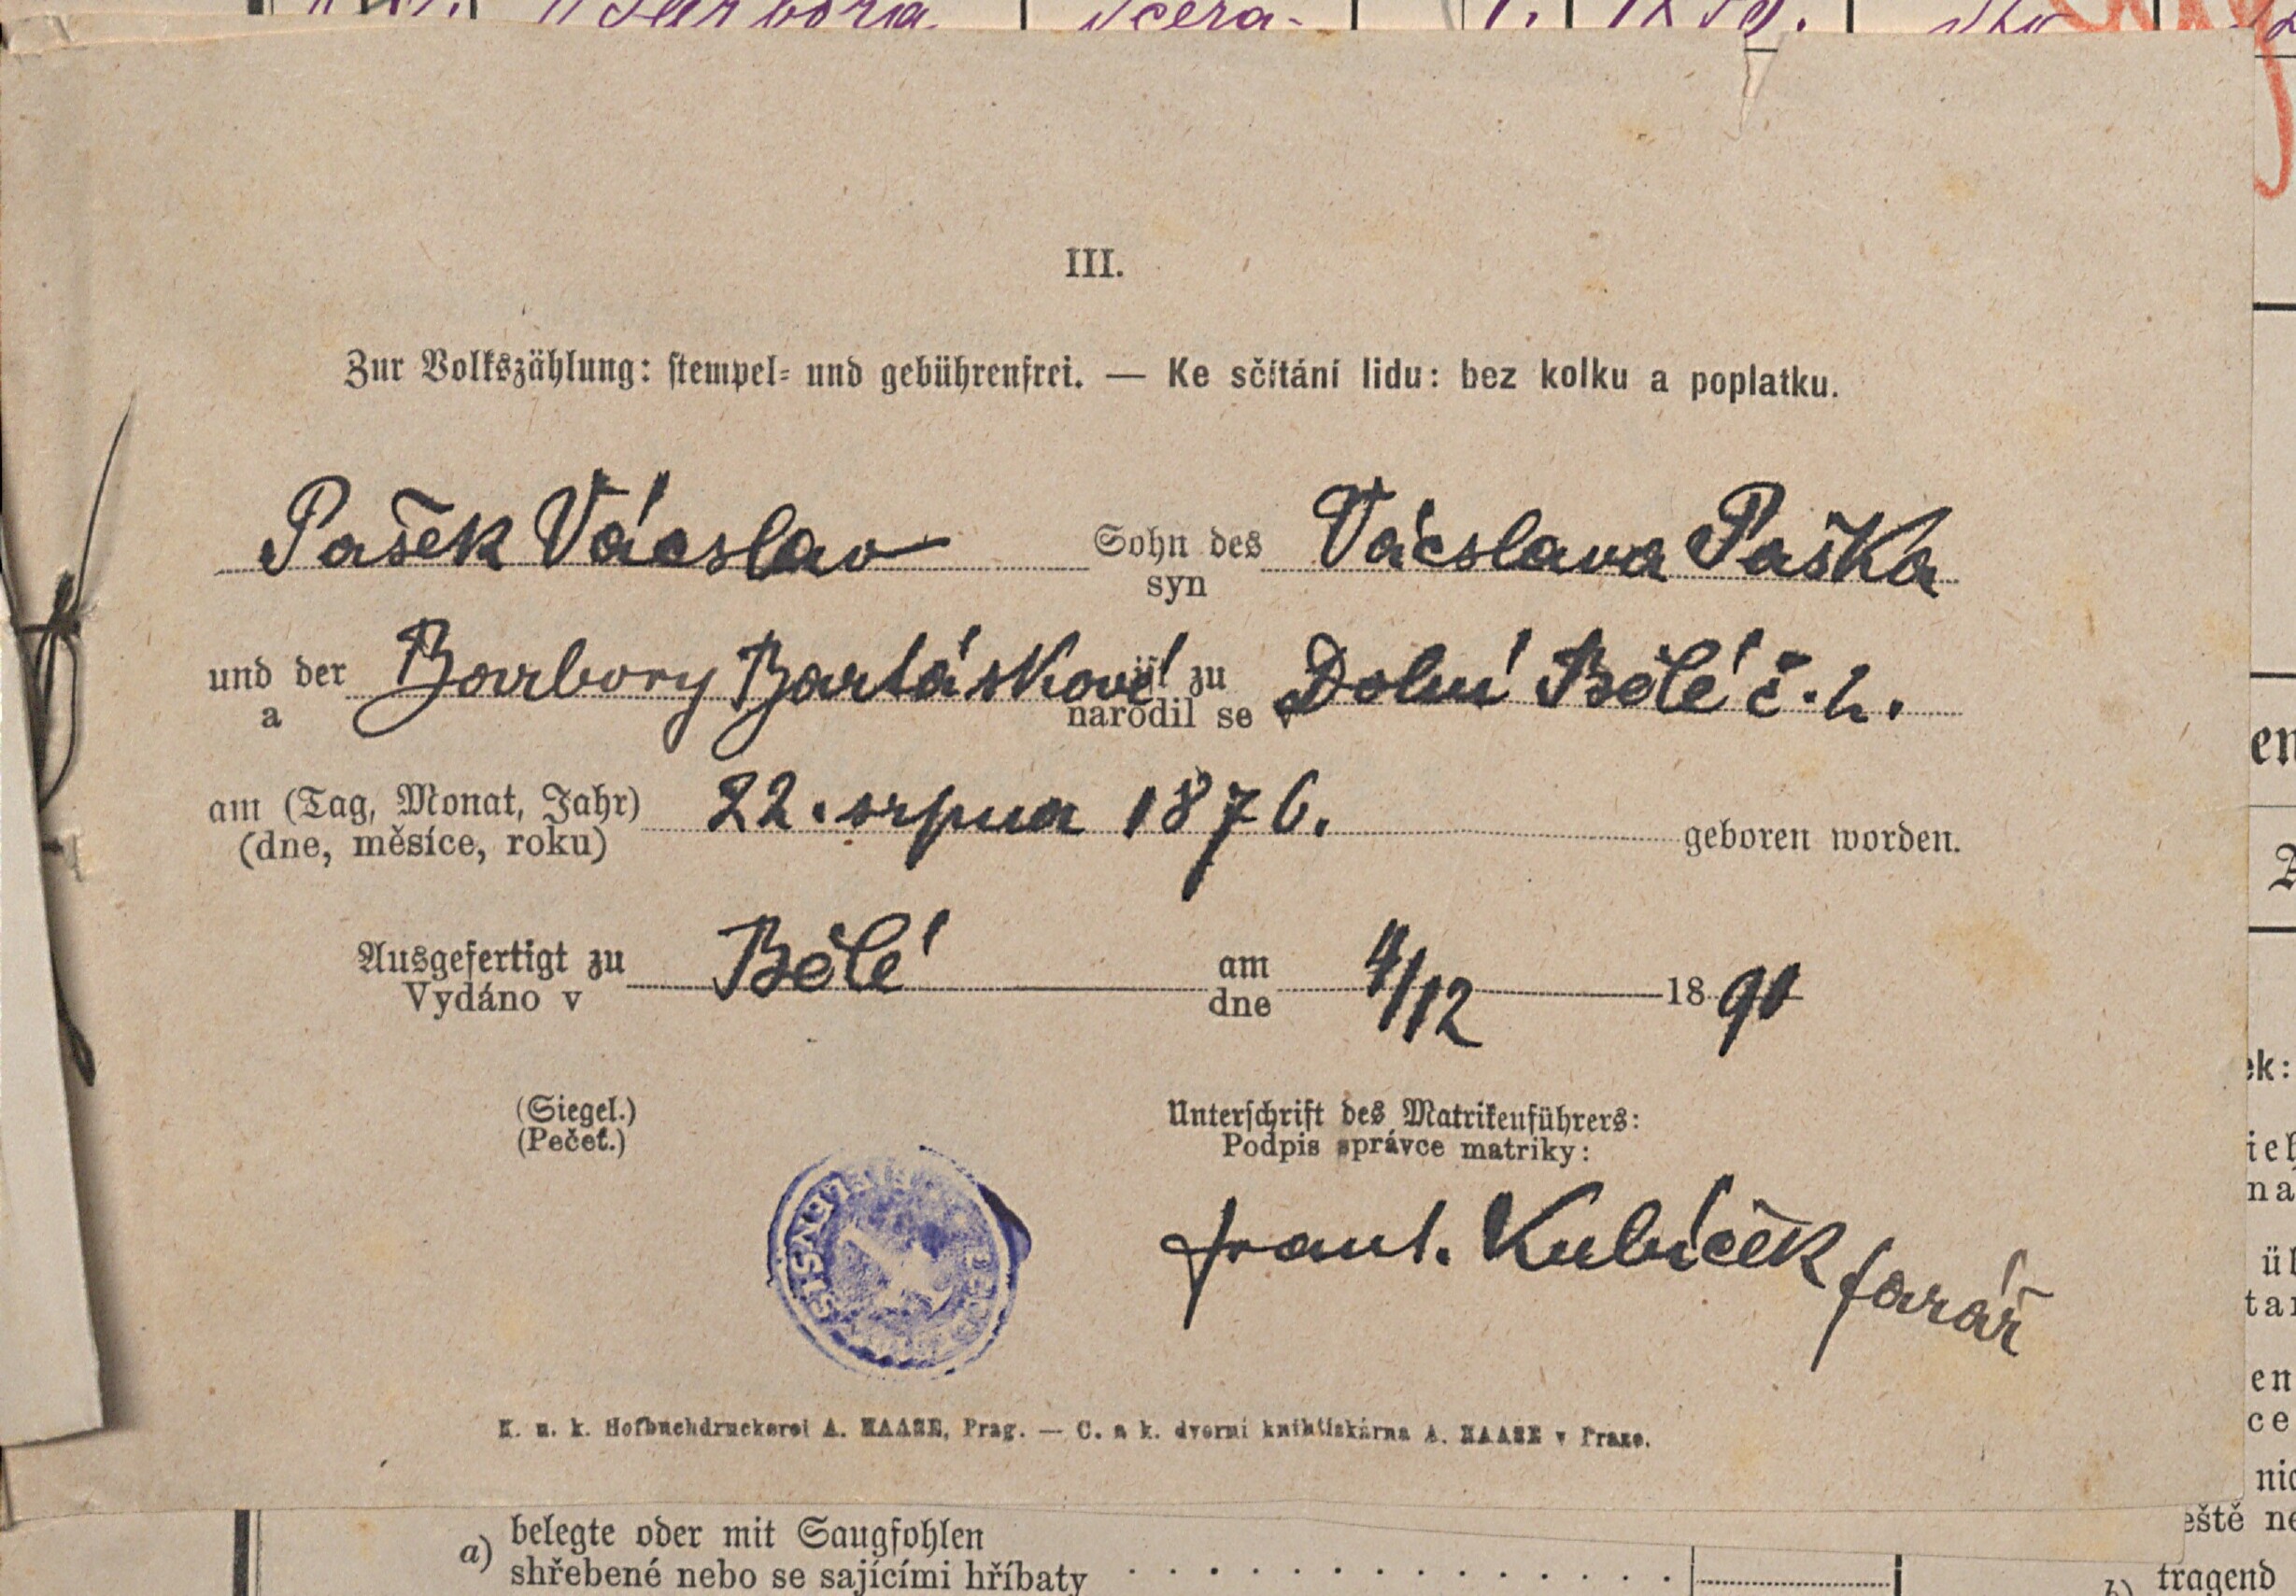 Barbora dcera
III.
Zur Volkszählung: stempel- und gebührenfrei. — Ke sčítání lidu: bez kolku a poplatku.
Pašek Vácslav Sohn des Vácslava Paška
syn
und der Barbory Bartáskové ist zu Dolní Bělé č. h.
a narodil se v
am (Tag, Monat, Jahr) 22. srpna 1876. geboren worden.
(dne, měsíce, roku)
Ausgefertigt zu Bělé am 4/12 1890
Vydáno v dne
(Siegel.) Unterschrift des Matrikenführers:
(Pečeť.) Podpis správce matriky:
frant. Kubíček farář
K. u. k. Hofbuchdruckerei A. HAASE, Prag. — C. a k. dvorní knihtiskárna A. HAASE v Praze.
a) belegte oder mit Saugfohlen
shřebené nebo se sajícími hříbaty
b) tragend